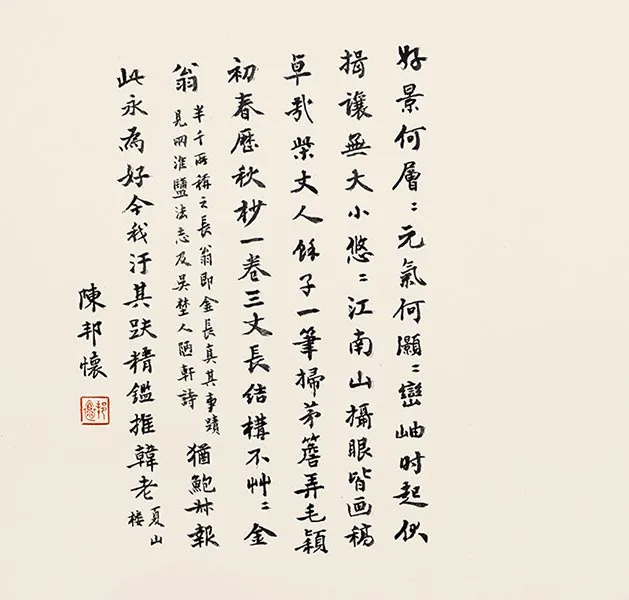 好景何層〻元氣何灝〻巒岫时起伏
揖讓無大小悠〻江南山攝眼皆画稿
卓哉柴丈人餘子一筆掃茅簷弄毛穎
初春歷秋杪一卷三丈長結構不艸〻金
翁半千所稱之長翁即金長真其事蹟見兩淮鹽法志及吳埜人陋軒詩猶鮑叔報
此永為好今我汙其趺精鑑推韓老夏山楼
陳邦懷